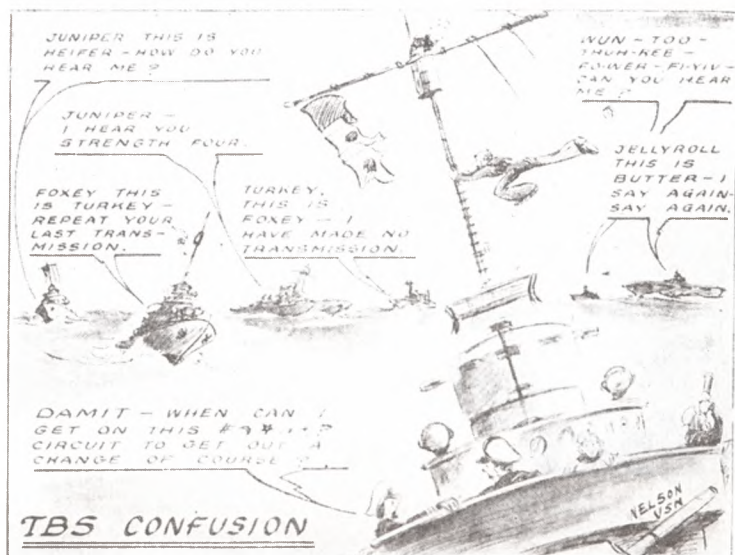 JUNIPER THIS IS
HEIFER - HOW DO YOU
HEAR ME?
JUNIPER -
I HEAR YOU
STRENGTH FOUR.
FOXEY THIS
IS TURKEY -
REPEAT YOUR
LAST TRANS-
MISSION.
TURKEY,
THIS IS
FOXEY - I
HAVE MADE NO
TRANSMISSION.
WUN - TOO -
THUH-REE -
FO-WER - FI-YIV -
CAN YOU HEAR
ME?
JELLYROLL
THIS IS
BUTTER - I
SAY AGAIN-
SAY AGAIN.
DAMIT - WHEN CAN I
GET ON THIS
CIRCUIT TO GET OUT A
CHANGE OF COURSE?
TBS CONFUSION
NELSON
USN